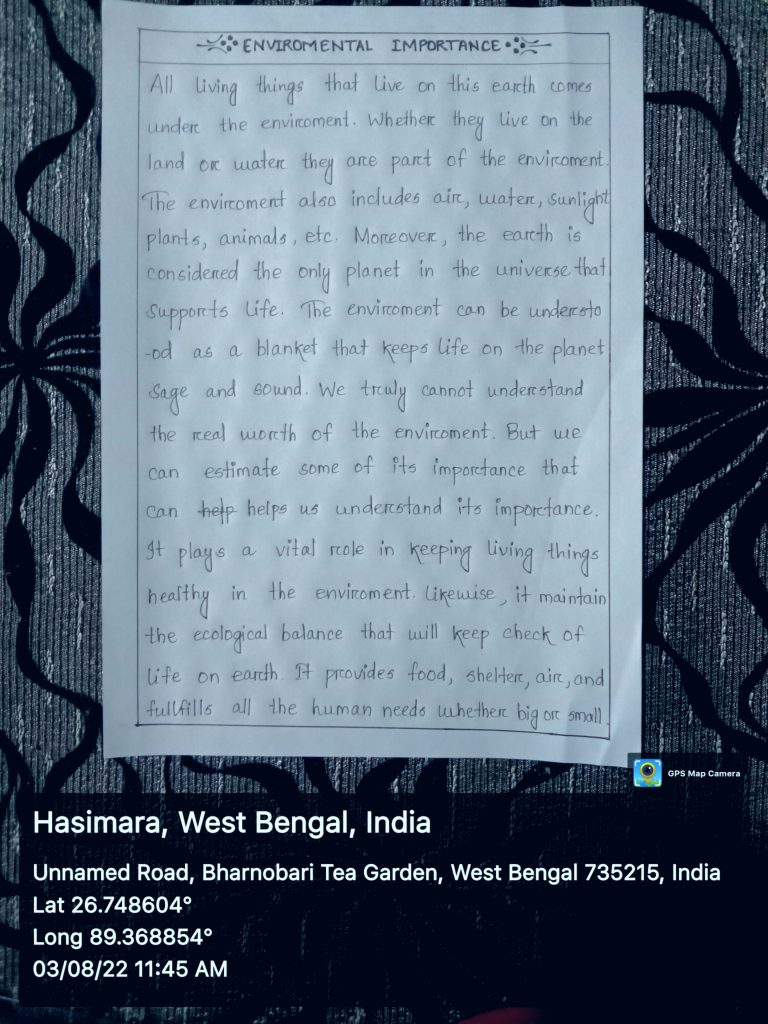 ENVIROMENTAL IMPORTANCE
All living things that live on this earth comes
under the enviroment. Whether they live on the
land or water they are part of the enviroment.
The enviroment also includes air, water, sunlight
plants, animals, etc. Moreover, the earth is
considered the only planet in the universe that
supports life. The enviroment can be understo
-od as a blanket that keeps life on the planet
sage and sound. We truly cannot understand
the real worth of the enviroment. But we
can estimate some of its importance that
can help helps us understand its importance.
It plays a vital role in keeping living things
healthy in the enviroment. Likewise, it maintain
the ecological balance that will keep check of
life on earth. It provides food, shelter, air, and
fullfills all the human needs whether big or small.
GPS Map Camera
Hasimara, West Bengal, India
Unnamed Road, Bharnobari Tea Garden, West Bengal 735215, India
Lat 26.748604°
Long 89.368854°
03/08/22 11:45 AM